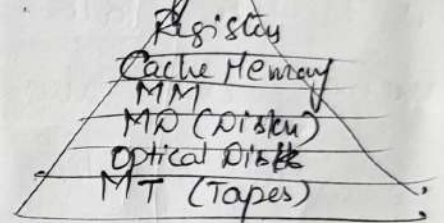 Register
Cache Memory
MM
MD (Disku)
Optical Disk
MT (Tapes)